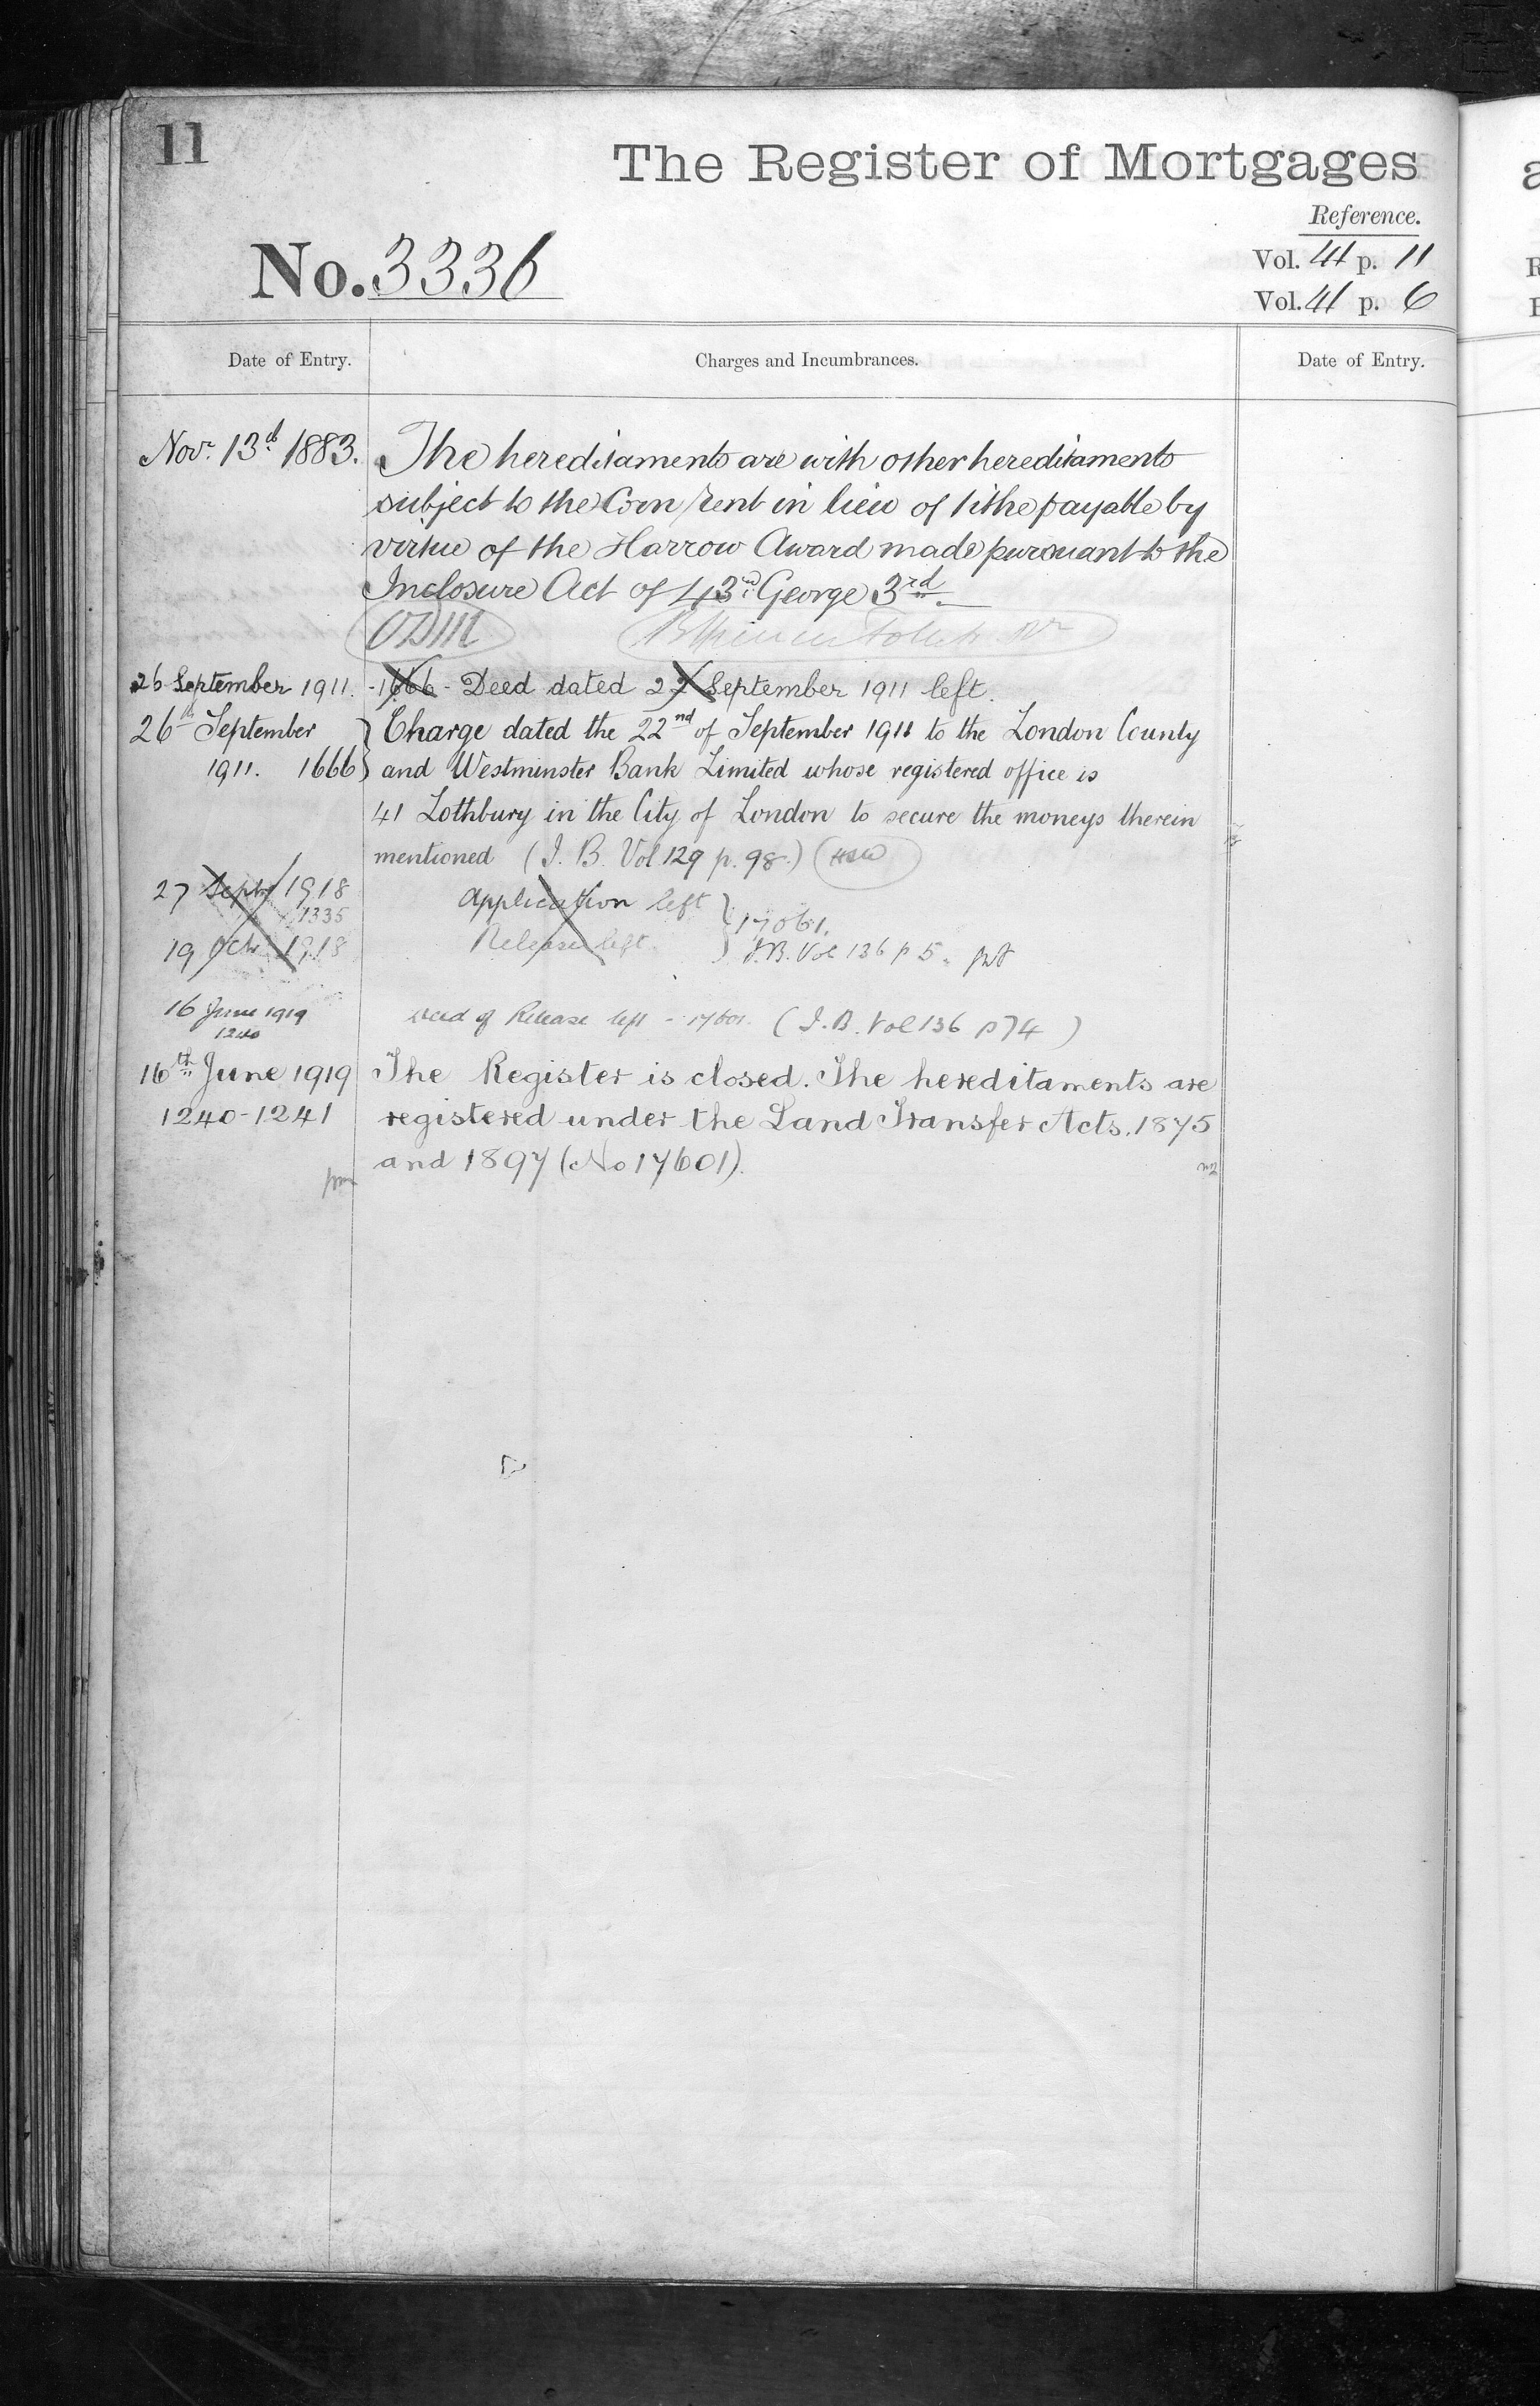 11
The Register of Mortgages
Reference.
No. 3336
Vol. 41 p. 11
Vol. 41 p. 6
Date of Entry.
Charges and Incumbrances.
Date of Entry.
Novr. 13th 1883.
The hereditaments are with other hereditaments
subject to the Corn rent in lieu of tithe payable by
virtue of the Harrow Award made pursuant to the
Inclosure Act of 43rd George 3rd.
26 September 1911. -1666- Deed dated 22 September 1911 left.
26th September
1911. 1666
Charge dated the 22nd of September 1911 to the London County
and Westminster Bank Limited whose registered office is
41 Lothbury in the City of London to secure the moneys therein
mentioned (I. B. Vol 129 p. 98.)
27 Septr 1918 Application left
1335 17061.
19 Octr 1918 Release left
I.B. Vol 136 p 5.
16 June 1919 Deed of Release left - 17601. (I. B. Vol 136 p 74)
1240
16th June 1919 The Register is closed. The hereditaments are
1240-1241 registered under the Land Transfer Acts. 1875
and 1897 (No 17601).